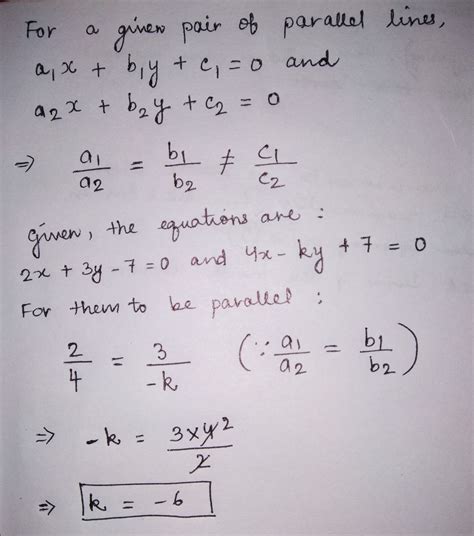 For a given pair of parallel lines,
a₁x + b₁y + c₁ = 0 and
a₂x + b₂y + c₂ = 0
⇒ a₁/a₂ = b₁/b₂ ≠ c₁/c₂
given, the equations are :
2x + 3y - 7 = 0 and 4x - ky + 7 = 0
For them to be parallel :
2/4 = 3/-k (∵ a₁/a₂ = b₁/b₂)
⇒ -k = 3×4̸ 2/2̸
⇒ k = -6